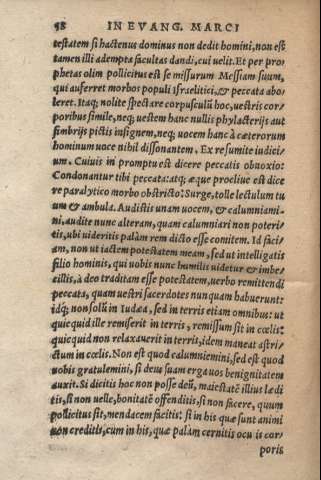 58 IN EVANG. MARCI
testatem si hactenus dominus non dedit homini, non est
tamen illi adempta facultas dandi, cui uelit. Et per pro/
phetas olim pollicitus est se missurum Messiam suum,
qui auferret morbos populi Israelitici, & peccata abo/
leret. Itaq; nolite spectare corpusculū hoc, uestris cor/
poribus simile, neq; uestem hanc nullis phylacterijs aut
fimbrijs pictis insignem, neq; uocem hanc à cæterorum
hominum uoce nihil dissonantem. Ex re sumite iudici/
um. Cuiuis in promptu est dicere peccatis obnoxio:
Condonantur tibi peccata: atq; æque procliue est dice
re paralytico morbo obstricto: Surge, tolle lectulum tu
um & ambula. Audistis unam uocem, & calumniami⸗
ni, audite nunc alteram, quam calumniari non poteri/
tis, ubi uideritis palàm rem dicto esse comitem. Id faci/
am, non ut iactem potestatem meam, sed ut intelligatis
filio hominis, qui uobis nunc humilis uidetur & imbe/
cillis, à deo traditam esse potestatem, uerbo remittendi
peccata, quam uestri sacerdotes nunquam habuerunt:
idq; non solū in Iudæa, sed in terris etiam omnibus: ut
quicquid ille remiserit in terris, remissum sit in cœlis:
quicquid non relaxauerit in terris, idem maneat astri/
ctum in cœlis. Non est quod calumniemini, sed est quod
uobis gratulemini, si deus suam erga uos benignitatem
auxit. Si dicitis hoc non posse deū, maiestatē illius lædi
tis, si non uelle, bonitatē offenditis, si non facere, quum
pollicitus sit, mendacem facitis: si in his quæ sunt animi
non creditis, cum in his, quæ palàm cernitis ocu is cor/
poris